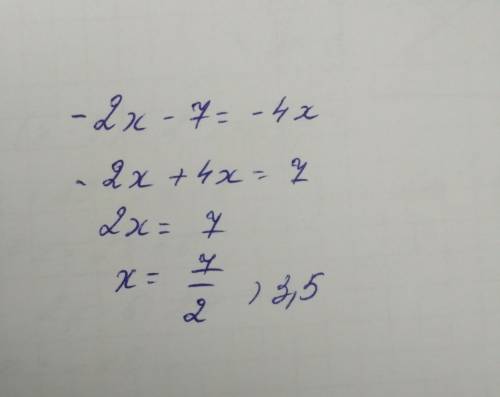 -2x - 7 = -4x
-2x + 4x = 7
2x = 7
x = 7/2 , 3,5